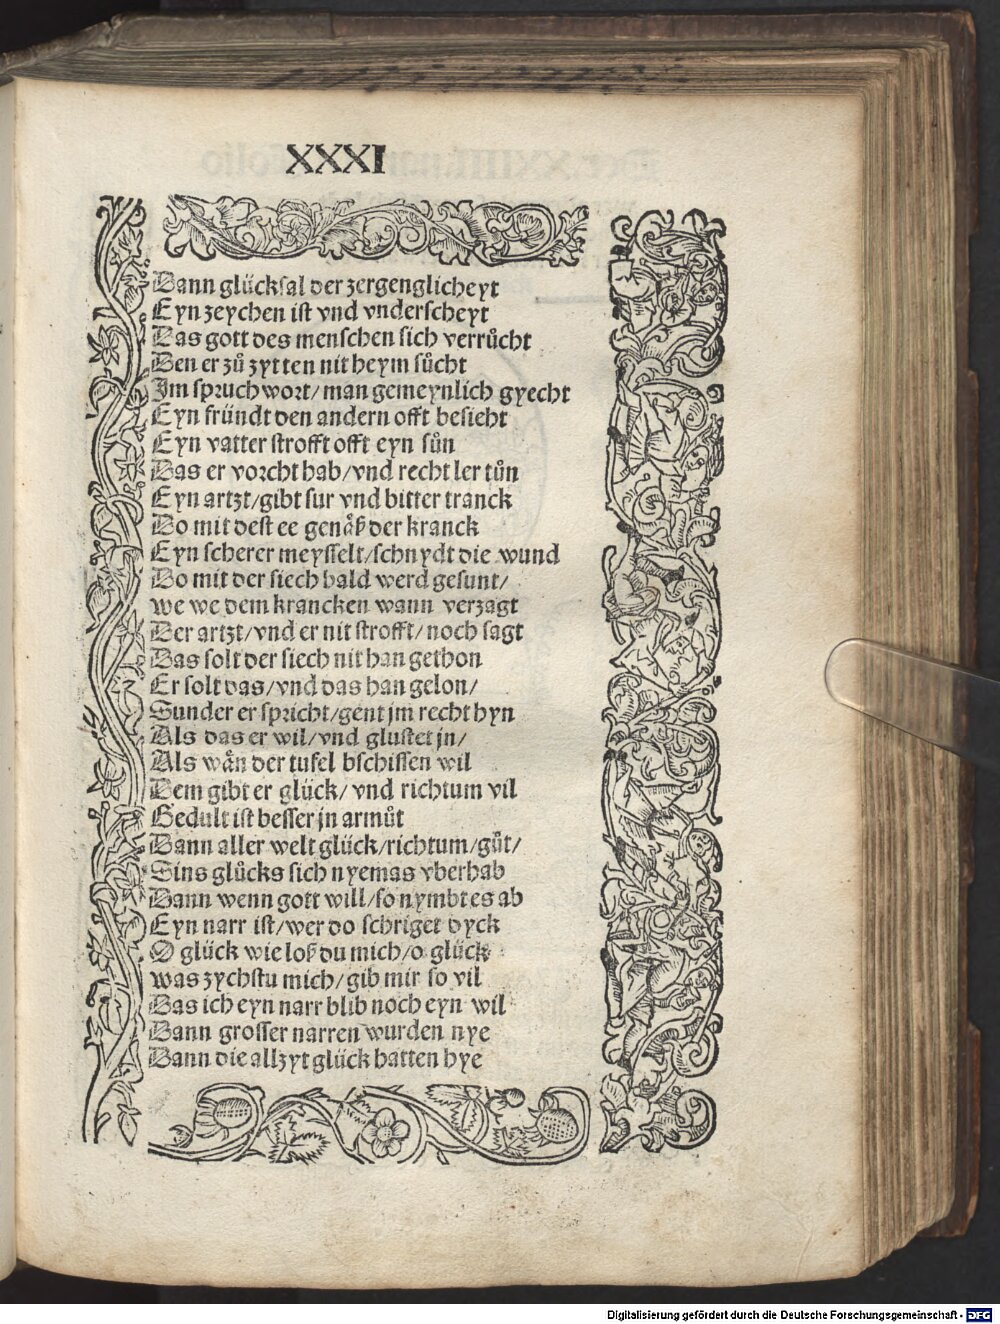 XXXI
Dann glücksal der zergenglicheyt
Eyn zeychen ist vnd vnderscheyt
Das gott des menschen sich verrůcht
Den er zů zytten nit heym sůcht
Im spruchwort/ man gemeynlich gyecht
Eyn fründt den andern offt besieht
Eyn vatter strofft offt eyn sůn
Das er vorcht hab/vnd recht ler tůn
Eyn artzt/gibt sur vnd bitter tranck
Do mit dest ee genäß der kranck
Eyn scherer meysselt/schnydt die wund
Do mit der siech bald werd gesunt/
we we dem krancken wann verzagt
Der artzt/vnd er nit strofft/noch sagt
Das solt der siech nit han gethon
Er solt das/vnd das han gelon/
Sunder er spricht/gent jm recht hyn
Als das er wil/vnd glustet jn/
Als wän der tufel bschissen wil
Dem gibt er glück/ vnd richtum vil
Gedult ist besser jn armůt
Dann aller welt glück/richtum/gůt/
Sins glůcks sich nyemas vberhab
Dann wenn gott will/so nymbt es ab
Eyn narr ist/wer do schriget dyck
O glück wie loß du mich/o glück
was zychstu mich/gib mir so vil
Das ich eyn narr blib noch eyn wil
Dann grosser narren wurden nye
Dann die allzyt glück hatten hye
Digitalisierung gefördert durch die Deutsche Forschungsgemeinschaft - DFG